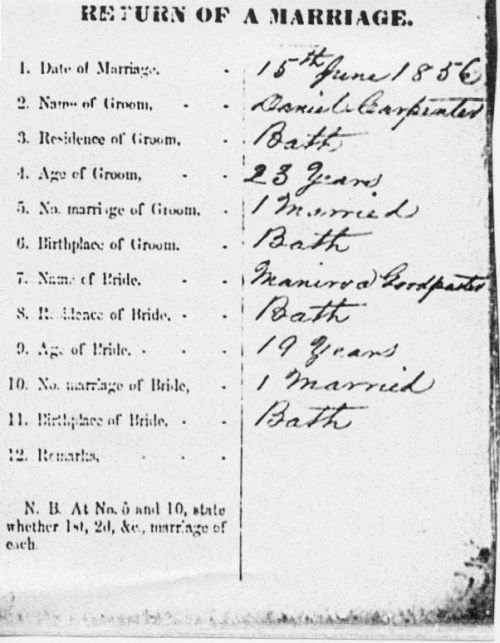 RETURN OF A MARRIAGE.
1. Date of Marriage, - 15th June 1856
2. Name of Groom, - - Daniel Carpenter
3. Residence of Groom, - Bath
4. Age of Groom, - - 23 Years
5. No. marriage of Groom, - 1 Married
6. Birthplace of Groom. - Bath
7. Name of Bride. - - Manirva Goodpaster
8. Residence of Bride, - - Bath
9. Age of Bride. - - - 19 Years
10. No. marriage of Bride, - 1 Married
11. Birthplace of Bride, - - Bath
12. Remarks, - - -
N. B. At No. 5 and 10, state
whether 1st, 2d, &c., marriage of
each.